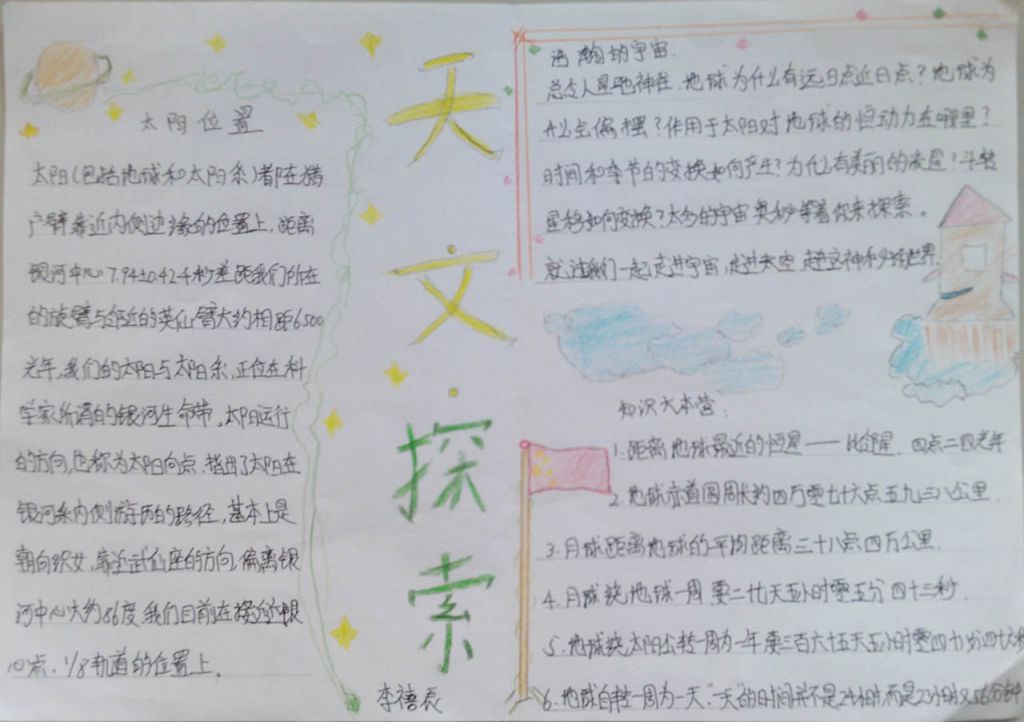 太阳位置
太阳(包括地球和太阳系)都在猎
户臂靠近内侧边缘的位置上,距离
银河中心7.94±0.42千秒差距我们所在
的旋臂与邻近的英仙臂大约相距6500
光年,我们的太阳与太阳系,正位在科
学家所谓的银河生命带。太阳运行
的方向,也称为太阳向点,指出了太阳在
银河系内侧游历的路径,基本上是
朝向织女,靠近武仙座的方向,偏离银
河中心大约86度.我们目前在接近
心点,1/8轨道的位置上。
天文·探索
李禧辰
浩瀚的宇宙.
总令人星驰神往.地球为什么有远日点近日点?地球为
什么会偏摆?作用于太阳对地球的恒动力在哪里?
时间和季节的变换如何产生?为什么有美丽的流星?斗转
星移如何变换?太多的宇宙奥秘等着你来探索。
就让我们一起,走进宇宙,走进太空 走进这神秘的世界.
知识大本营:
1.距离地球最近的恒星——比邻星.四点二四光年
2.地球赤道圆周长约四万零七十六点五九三八公里.
3.月球距离地球的平均距离三十八点四万公里.
4.月球绕地球一周 要二十七天五小时零五分 四十三秒.
5.地球绕太阳公转一周为一年要三百六十五天五小时零四十八分四十六秒
6.地球自转一周为一天.一天的时间并不是24小时,而是23小时又56分钟